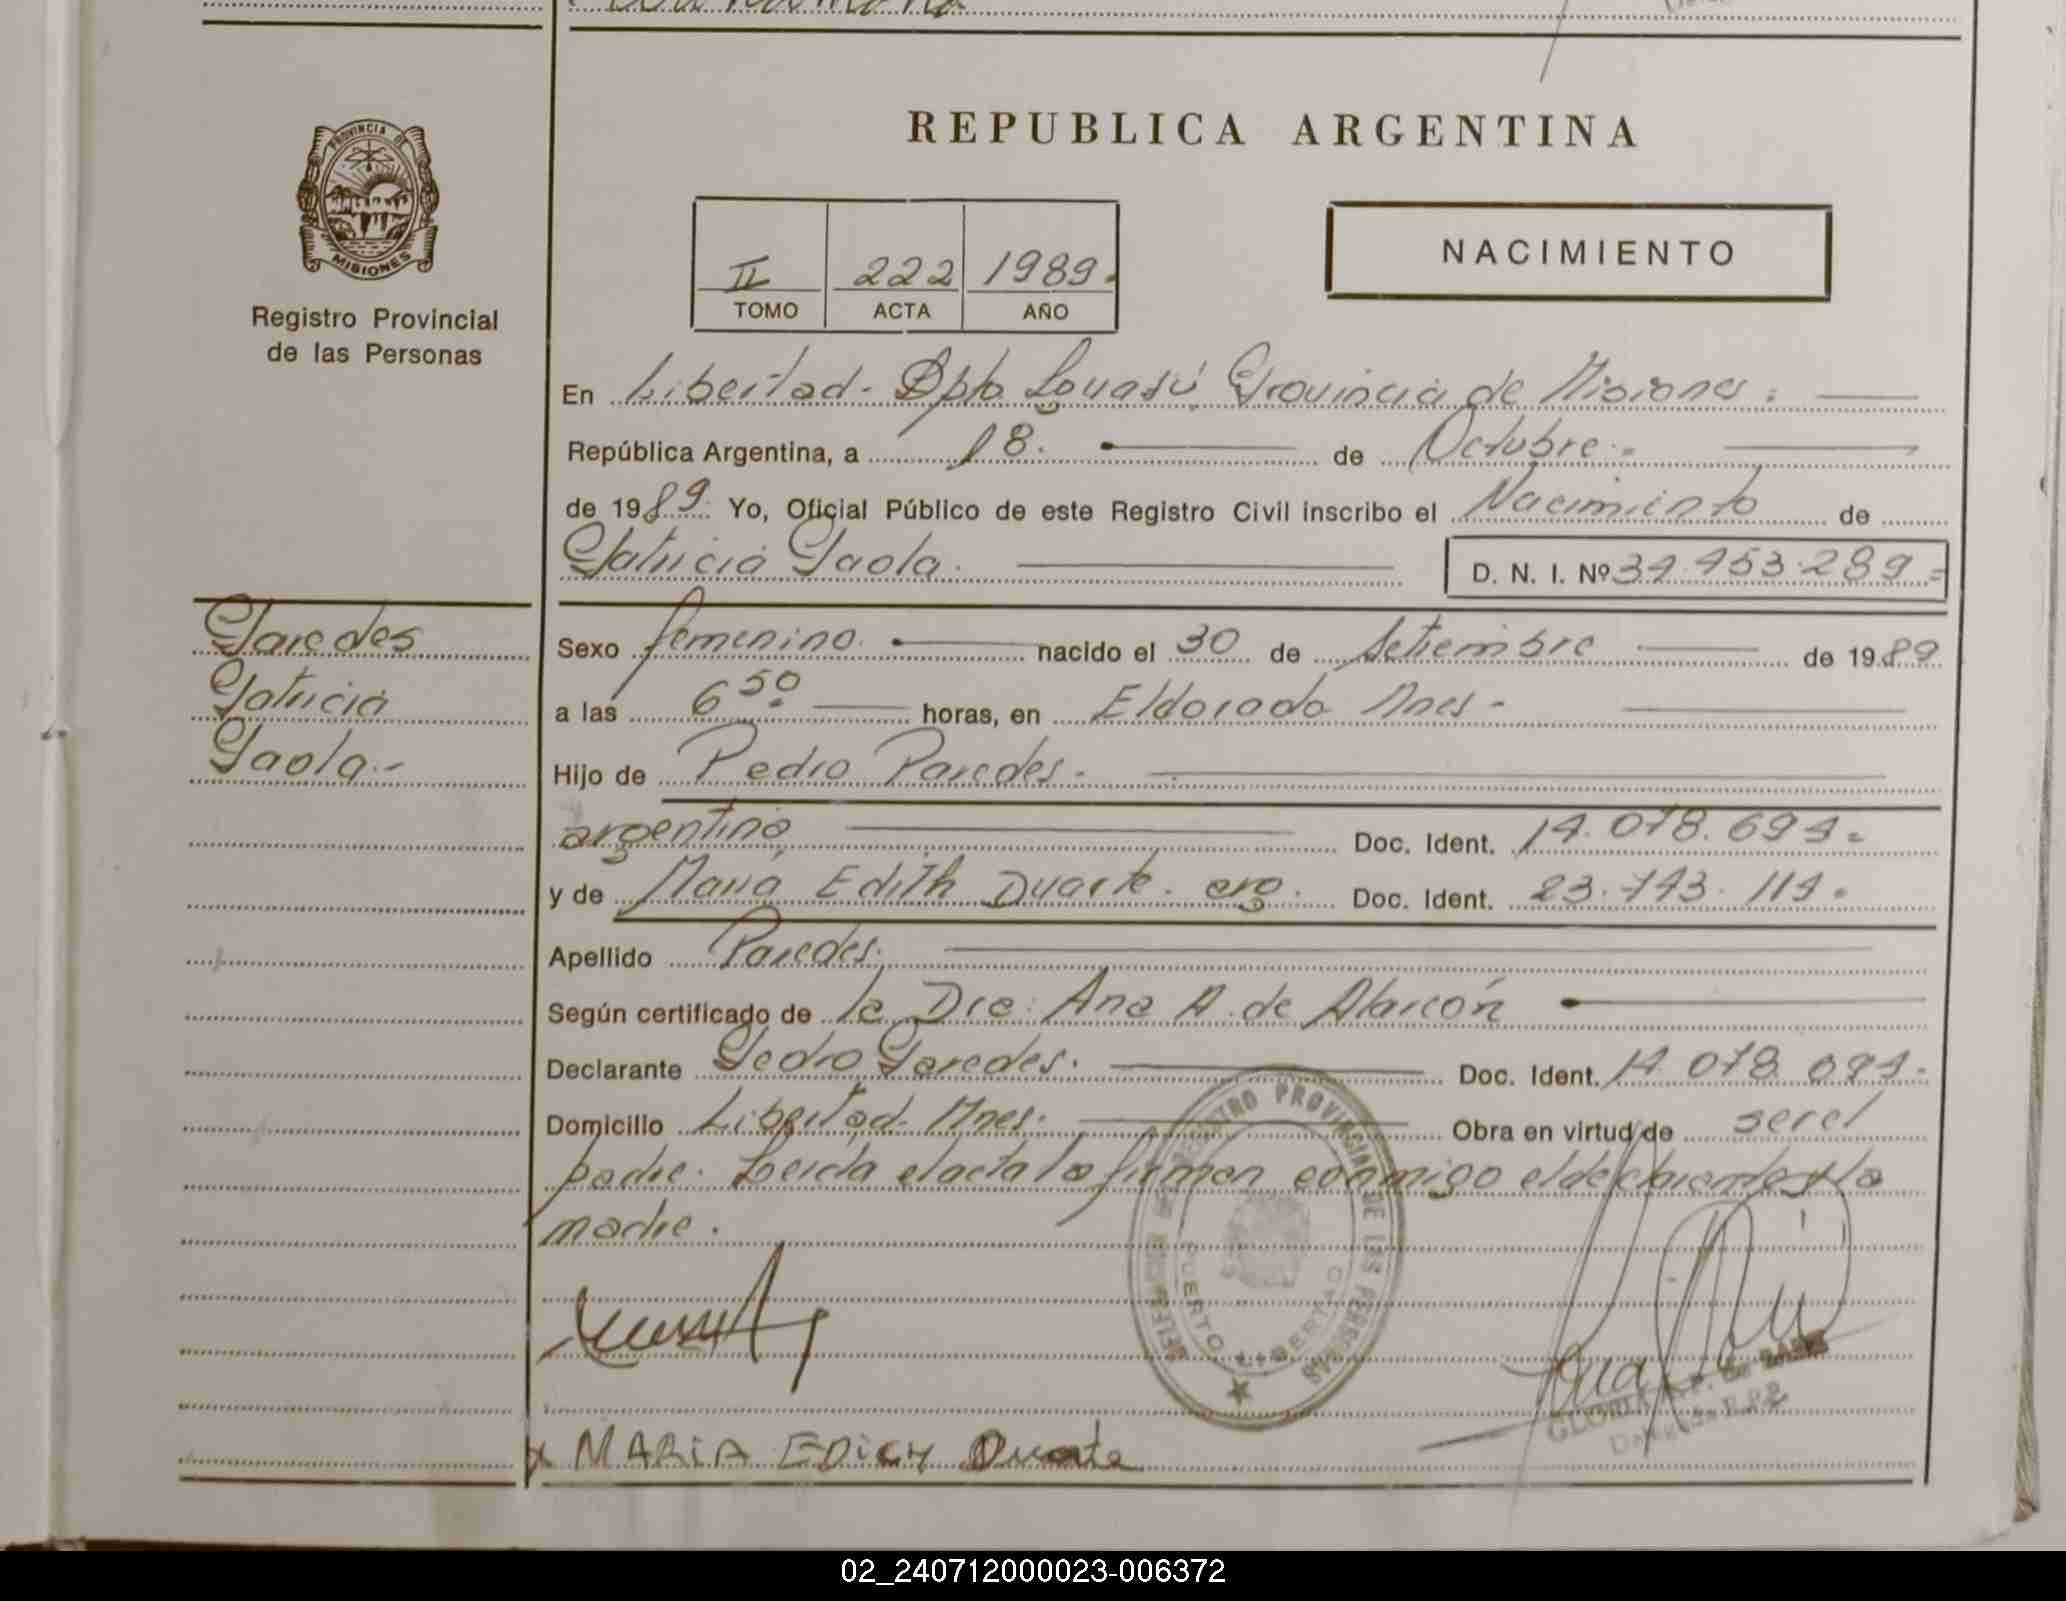 PROVINCIA DE
MISIONES
Registro Provincial
de las Personas
REPUBLICA ARGENTINA
II 222 1989.
TOMO ACTA AÑO
NACIMIENTO
En Libertad - Dpto Iguasú Provincia de Misiones.
República Argentina, a 18. de Octubre.
de 1989. Yo, Oficial Público de este Registro Civil inscribo el Nacimiento de
Patricia Paola. D. N. I. Nº 34.453.289
Paredes
Patricia
Paola.-
Sexo femenino. nacido el 30 de Setiembre de 1989
a las 6 50 horas, en Eldorado Mnes -
Hijo de Pedro Paredes.
argentino Doc. Ident. 14.078.694
y de Maria Edith Duarte. arg. Doc. Ident. 23.743.114.
Apellido Paredes.
Según certificado de la Dra: Ana A. de Alarcón
Declarante Pedro Paredes. Doc. Ident. 14 078 694.
Domicilio Libertad - Mnes. Obra en virtud de ser el
padre. Leida el acta la firman conmigo el declarante y la
madre.
REGISTRO PROVINCIAL DE LAS PERSONAS
PUERTO LIBERTAD
x MARIA EDICH Duarte
GLORIA
02_240712000023-006372